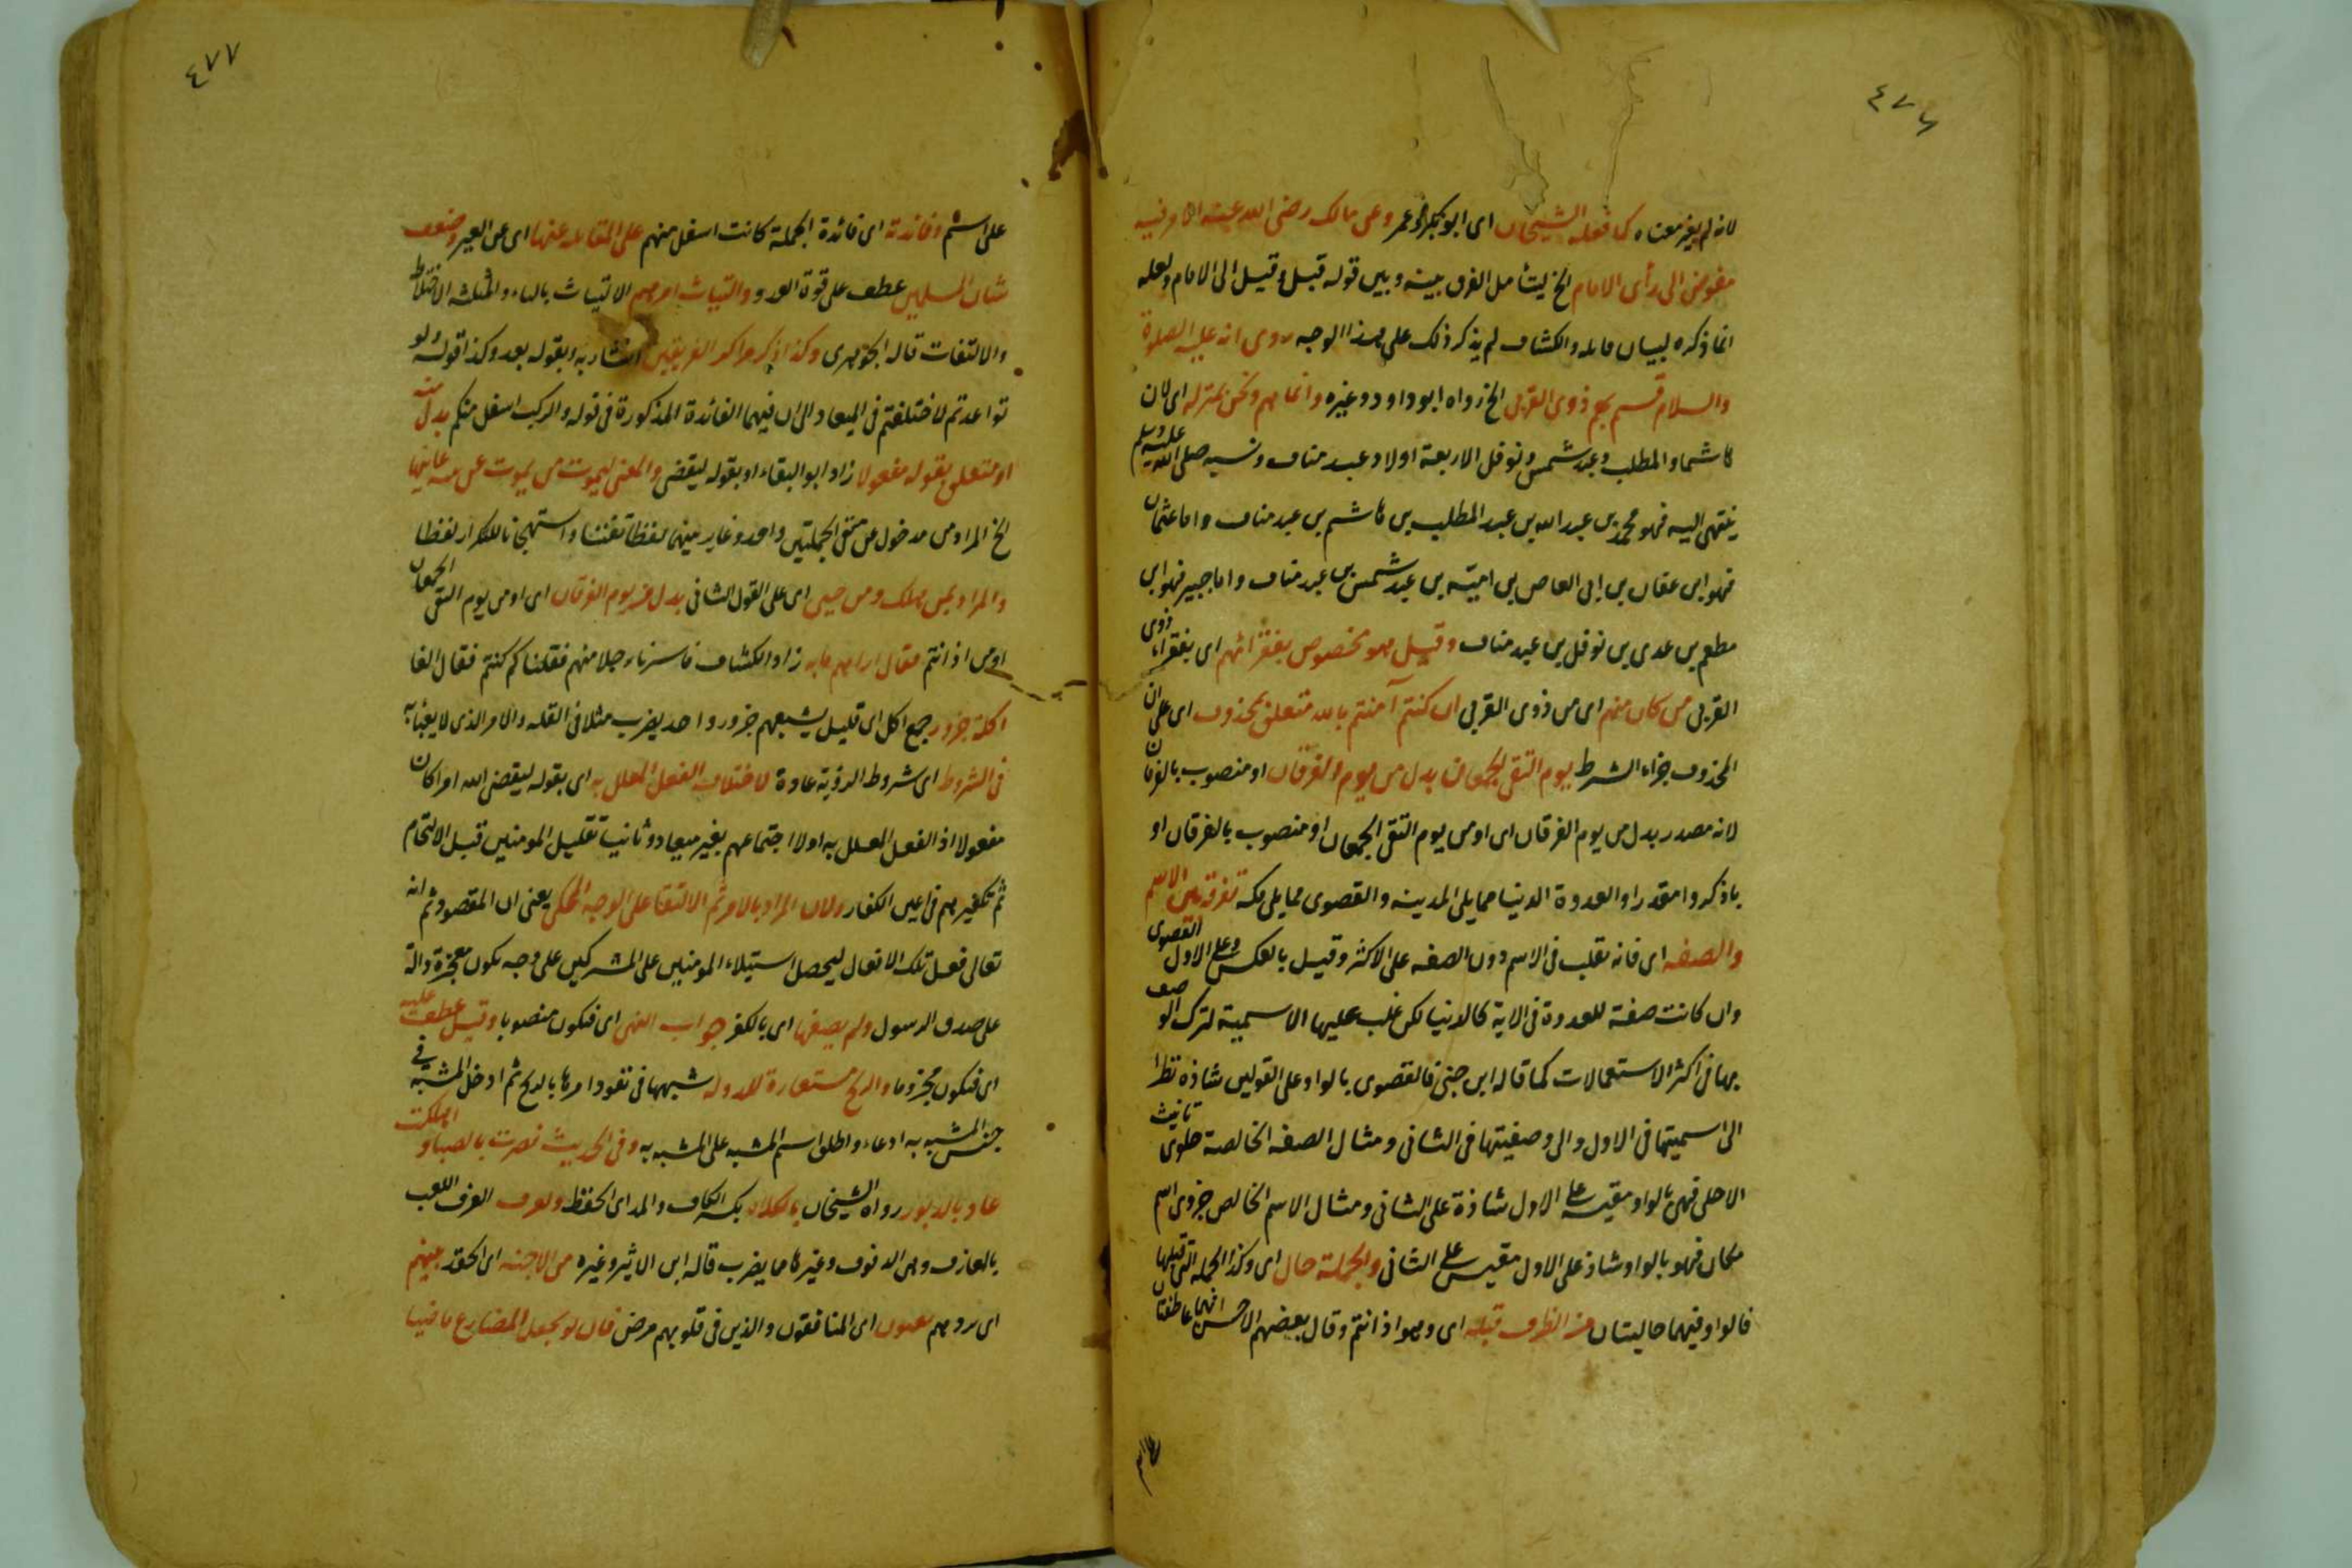 ٤٧٦
لانه لم يغز معناه كما فعله الشيخان اى ابو بكر وعمر وعن مالك رضى الله عنه الامر فيه
مفوض الى رأى الامام الخ ليتأمل الفرق بينه وبين قوله قبل وقيل الى الامام ولعله
انما ذكره لبيان قابله والكشاف لم يذكر ذلك على هذا الوجه روى انه عليه الصلوة
والسلام قسم سهم ذوى القربى الخ رواه ابو داود وغيره وانما هم ونحن بمنزلة اى لان
هاشما والمطلب وعبد شمس ونوفل الاربعة اولاد عبد مناف ونسبه صلى الله عليه وسلم
ينتهى اليه فهو محمد بن عبد الله بن عبد المطلب بن هاشم بن عبد مناف واما عثمان
فهو ابن عفان بن ابى العاص بن امية بن عبد شمس بن عبد مناف واما جبير فهو ابن
مطعم بن عدى بن نوفل بن عبد مناف وقيل هو مخصوص بفقرائهم اى بفقراء ذوى
القربى من كان منهم اى من ذوى القربى ان كنتم آمنتم بالله متعلق بمحذوف اى على ان
المحذوف جزاء الشرط يوم التقى الجمعان بدل من يوم الفرقان او منصوب بالفرقان
لانه مصدر بدل من يوم الفرقان اى او من يوم التقى الجمعان او منصوب بالفرقان او
باذكروا مقدرا والعدوة الدنيا مما يلى المدينة والقصوى مما يلى مكة تفرقة بين الاسم
والصفه اى فانه تقلب فى الاسم دون الصفه على الاكثر وقيل بالعكس وعلى الاول القصوى
وان كانت صفة للعدوة فى الاية كالدنيا لكن غلب عليها الاسمية لترك الوصف
بها فى اكثر الاستعمالات كما قاله ابن جنى فالقصوى بالواو على القولين شاذه نظرا
الى اسميتها فى الاول والى وصفيتها فى الثانى ومثال الصفه الخالصة حلوى تانيث
الاحلى فهى بالواو مقيسه على الاول شاذة على الثانى ومثال الاسم الخالص حزوى اسم
مكان فهو بالواو شاذ على الاول مقيس على الثانى والجملة حال اى وكذا الجمله التى قبلها
فالواو فيهما حاليتان من الظرف قبله اى وهو اذ انتم وقال بعضهم الاحسن انهما عاطفتان
على انتم
٤٧٧
على انتم وفائدته اى فائدة الجملة كانت اسفل منهم على المقاعد عنها اى عن العير وضعف
شان المسلمين عطف على قوة العدو والتياث امرهم الالتياث بالتاء والمثلثة الاختلاط
والالتفات قاله الجوهرى وكذا ذكر مراكز الفريقين اشار به وبقوله بعد وكذا قوله ولو
تواعدتم لاختلفتم فى الميعاد الى ان فيهما الفائدة المذكورة فى قوله والركب اسفل منكم بدل منه
او متعلق بقوله مفعولا زاد ابو البقاء او بقوله ليقضى والمعنى ليموت من يموت عن بينة عاينها
الخ المراد من مدخول عن متفق الجملتين واحد وغاير بينهما لفظا تفننا واستهجانا للتكرار لفظا
والمراد بمن هلك ومن حيى اى على القول الثانى بدل من يوم الفرقان اى او من يوم التقى الجمعان
او من اذ انتم فقال اراهم مايه زاد الكشاف فاسرنا رجلا منهم فقلنا كم كنتم فقال الفا
اكلة جزور جمع آكل اى قليل يشبعهم جزور واحد يضرب مثلا فى القله والامر الذى لا يعبأ به
فى الشروط اى شروط الرؤية عادة لاختلاف الفعل المعلل به اى بقوله ليقضى الله امرا كان
مفعولا اذ الفعل المعلل به اولا اجتماعهم بغير ميعاد وثانيا تقليل المومنين قبل الالتحام
ثم تكثيرهم فى اعين الكفار ولان المراد بالامر ثم الالتقا على الوجه المحكى يعنى ان المقصود ثم انه
تعالى فعل تلك الافعال ليحصل استيلاء المومنين على المشركين على وجه يكون معجزة دالة
على صدق الرسول ولم يصفها اى بالكفر جواب النهى اى فيكون منصوبا وقيل عطف عليه
اى فيكون مجزوما والريح مستعارة للدولة شبهها فى نفود امرها بالريح ثم ادخل المشبه فى
جنس المشبه به ادعاء واطلق اسم المشبه على المشبه به وفى الحديث نصرت بالصبا واهلكت
عاد بالدبور رواه الشيخان بالكلاء بكسر الكاف والمد اى الحفظ وتعزف العزف اللعب
بالمعازف وهى الدفوف وغيرها مما يضرب قاله ابن الاثير وغيره من الاجنه اى الحقد بينهم
اى المنافقون والذين فى قلوبهم مرض فان لو تجعل المضارع ماضيا